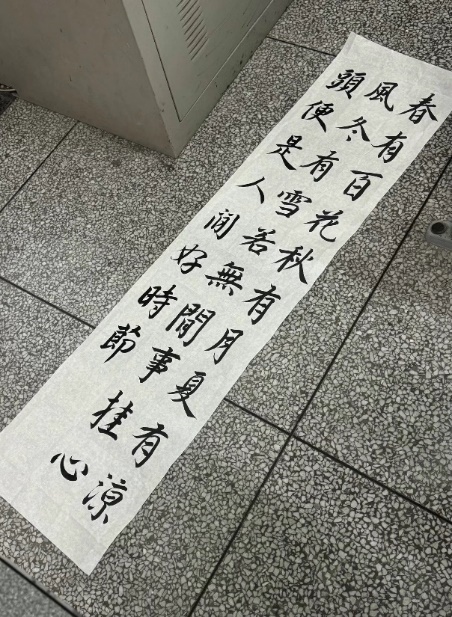 春有百花秋有月夏有涼
風冬有雪若無閒事挂心
頭便是人間好時節